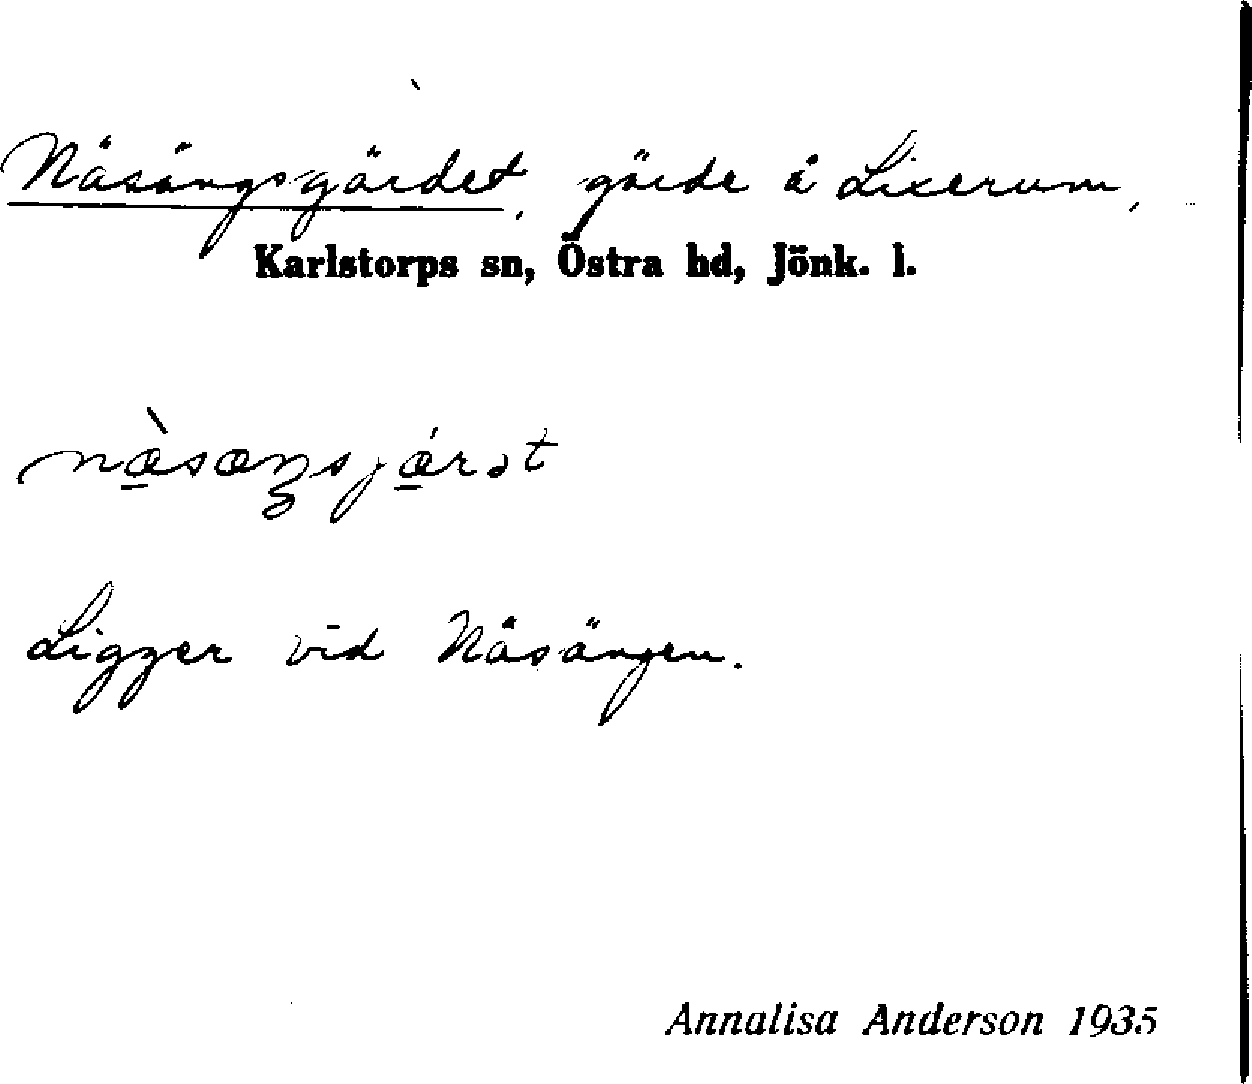 Näsängsgärdet, gärde å Lixerum,
Karlstorps sn, Östra hd, Jönk. l.
næ̀sæŋsjǽrət
Ligger vid Näsängen.
Annalisa Anderson 1935